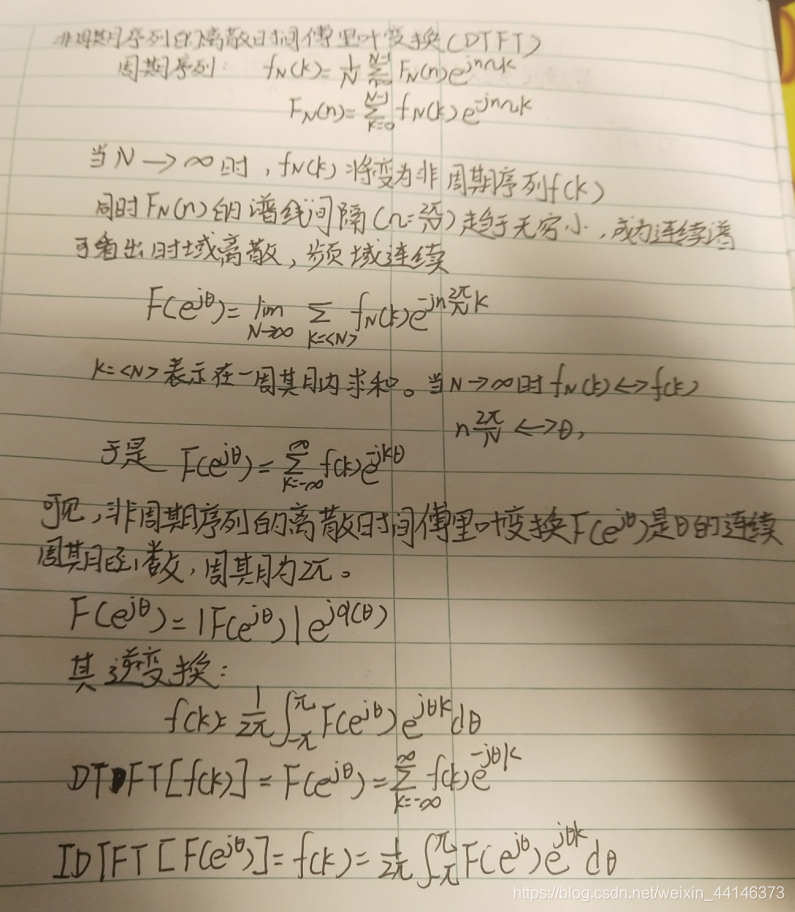 非周期序列的离散时间傅里叶变换(DTFT)
周期序列: f_N(k)=1/N Σ_{n=0}^{N-1} F_N(n)e^{jnΩk}
F_N(n)=Σ_{k=0}^{N-1} f_N(k)e^{-jnΩk}
当N→∞时,f_N(k)将变为非周期序列f(k)
同时F_N(n)的谱线间隔(Ω=2π/N)趋于无穷小,成为连续谱
可看出时域离散,频域连续
F(e^{jθ})=lim_{N→∞} Σ_{k=<N>} f_N(k)e^{-jn2π/N k}
k=<N>表示在一周期内求和。当N→∞时f_N(k)↔f(k)
n2π/N↔θ,
于是 F(e^{jθ})=Σ_{k=-∞}^{∞} f(k)e^{-jkθ}
可见,非周期序列的离散时间傅里叶变换F(e^{jθ})是θ的连续
周期函数,周期为2π。
F(e^{jθ})=|F(e^{jθ})|e^{jφ(θ)}
其逆变换:
f(k)=1/2π ∫_{-π}^{π} F(e^{jθ})e^{jθk}dθ
DTFT[f(k)]=F(e^{jθ})=Σ_{k=-∞}^{∞} f(k)e^{-jθk}
IDTFT[F(e^{jθ})]=f(k)=1/2π ∫_{-π}^{π} F(e^{jθ})e^{jθk}dθ
https://blog.csdn.net/weixin_44146373